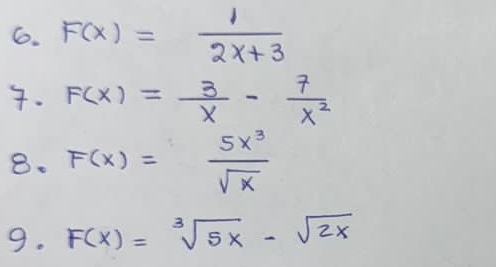 6. F(x) = 1/(2x+3)
7. F(x) = 3/x - 7/x²
8. F(x) = 5x³/√x
9. F(x) = ³√5x - √2x